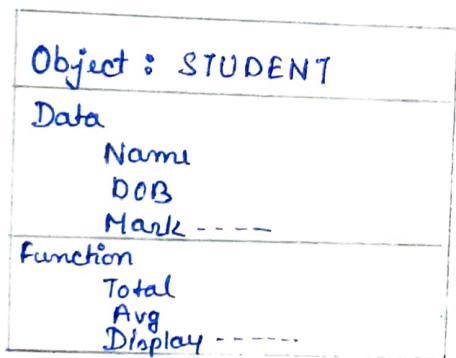 Object : STUDENT
Data
Name
DOB
Mark ----
Function
Total
Avg
Display ------